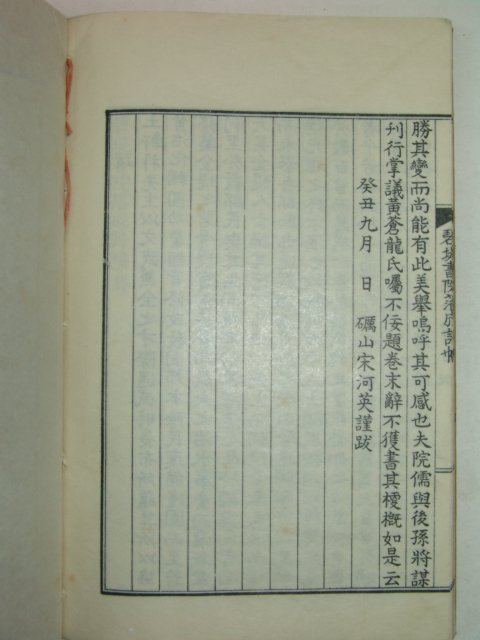 勝其變而尚能有此美舉嗚呼其可感也夫院儒與後孫將謀
刊行掌議黃蒼龍氏囑不佞題卷末辭不獲書其梗概如是云
癸丑九月　日　礪山宋河英謹跋
書院